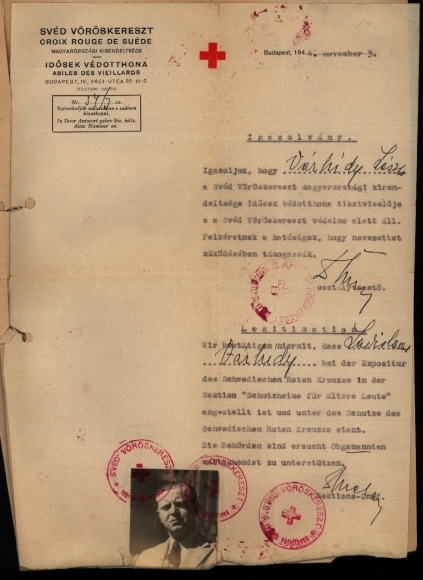 SVÉD VÖRÖSKERESZT
CROIX ROUGE DE SUÉDE
MAGYARORSZÁGI KIRENDELTSÉGE
IDŐSEK VÉDOTTHONA
ASILES DES VIEILLARDS
BUDAPEST, IV., VÁCI-UTCA
TELEFON:
Nr. sz.
Szíveskedjék válaszában e számra
hivatkozni.
In Ihrer Antwort geben Sie, bitte,
diese Nummer an.
Budapest, 194 4. november 3.
Igazolvány.
Igazoljuk, hogy Várhidy
a Svéd Vöröskereszt magyarországi kiren-
deltsége Idősek Védotthona tisztviselője
s a Svéd Vöröskereszt védelme alatt áll.
Felkéretnek a hatóságok, hogy nevezettet
működésében támogassák.
osztályvezető.
Legitimation
Wir bestätigen hiermit, dass Ladislaus
Várhidy bei der Expositur
des Schwedischen Roten Kreuzes in der
Sektion "Schutzheime für Ältere Leute"
angestellt ist und unter dem Schutze des
Schwedischen Roten Kreuzes steht.
Die Behörden sind ersucht Obgenannten
zu unterstützen.
SVÉD VÖRÖSKERESZT
SVÉD VÖRÖSKERESZT